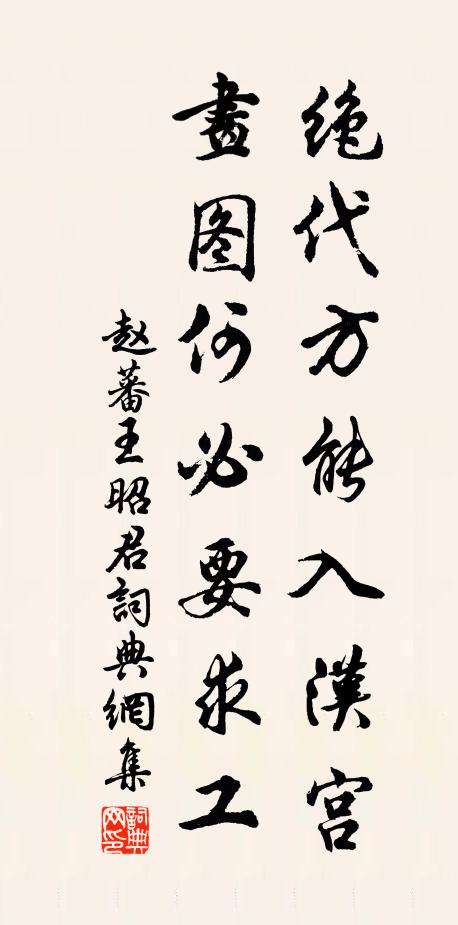 绝代方能入漢宫
畫图何必要求工
赵蕃王昭君詞典網集
詞典
网印